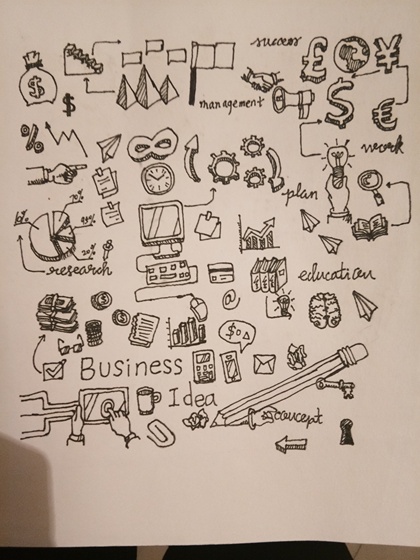 success
£ ¥
$
$
$
€
management
%
work
plan
70%
10%
20%
research
education
@
$
Business
Idea
concept